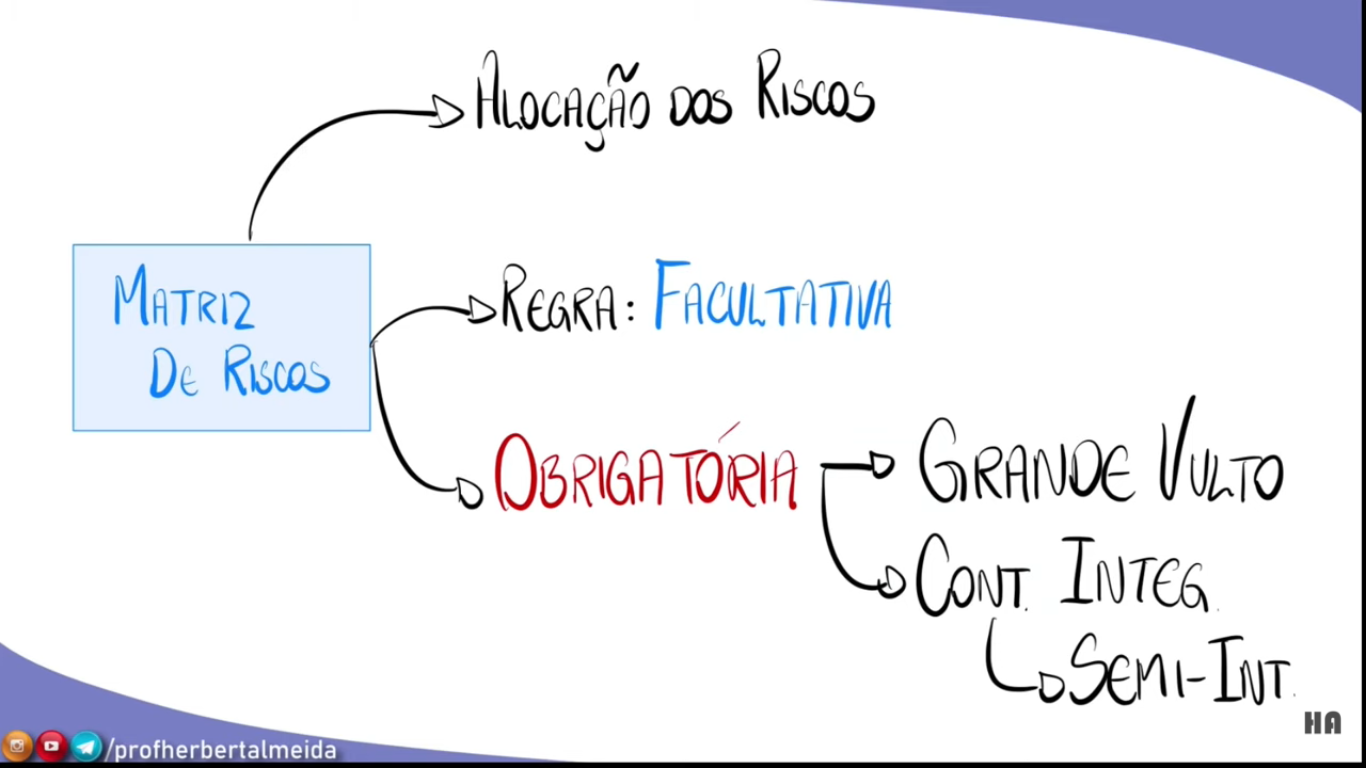 ALOCAÇÃO DOS RISCOS
MATRIZ
DE RISCOS
REGRA: FACULTATIVA
OBRIGATÓRIA
GRANDE VULTO
CONT. INTEG.
SEMI-INT.
HA
/profherbertalmeida